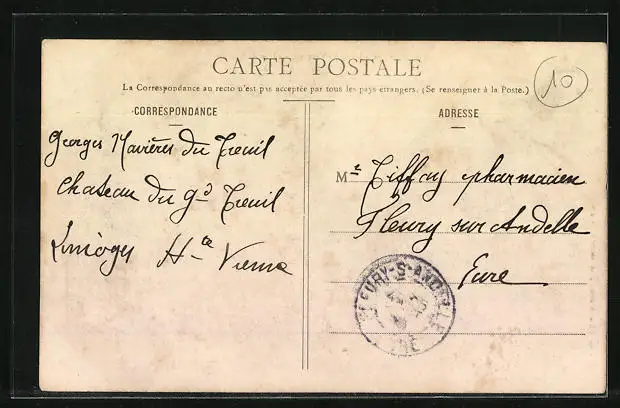 CARTE POSTALE
La Correspondance au recto n'est pas acceptée par tous les pays étrangers. (Se renseigner à la Poste.)
10
CORRESPONDANCE
Georges Navières du Treuil
Chateau du gd Treuil
Limoges Hte Vienne
ADRESSE
Mr Tiffay pharmacien
Fleury sur Andelle
Eure
FLEURY-S-ANDELLE
EURE